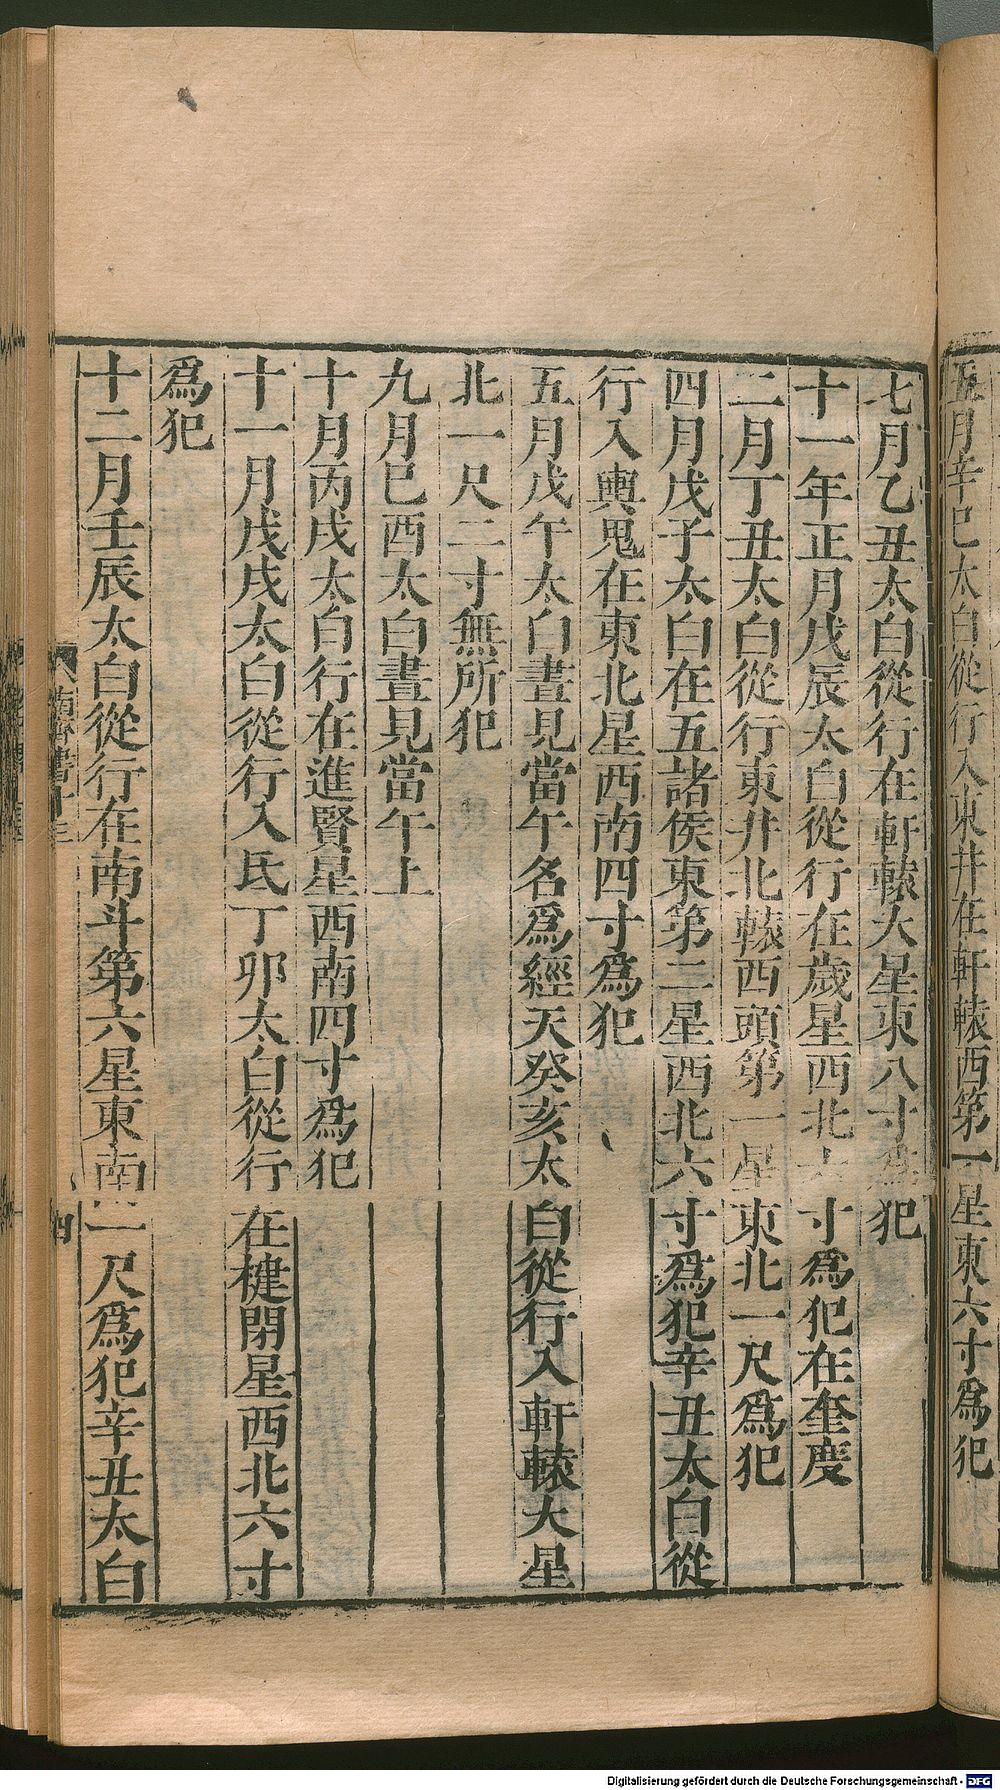 五月辛巳太白從行入東井在軒轅西第一星東六寸爲犯
七月乙丑太白從行在軒轅大星東八寸爲犯
十一年正月戊辰太白從行在歲星西北六寸爲犯在奎度
二月丁丑太白從行東井北轅西頭第一星東北一尺爲犯
四月戊子太白在五諸侯東第二星西北六寸爲犯辛丑太白從
行入輿鬼在東北星西南四寸爲犯
五月戊午太白晝見當午名爲經天癸亥太白從行入軒轅大星
北一尺二寸無所犯
九月巳酉太白晝見當午上
十月丙戌太白行在進賢星西南四寸爲犯
十一月戊戌太白從行入氐丁卯太白從行在楗閉星西北六寸
爲犯
十二月壬辰太白從行在南斗第六星東南一尺爲犯辛丑太白
南齊書十三
四
Digitalisierung gefördert durch die Deutsche Forschungsgemeinschaft - DFG